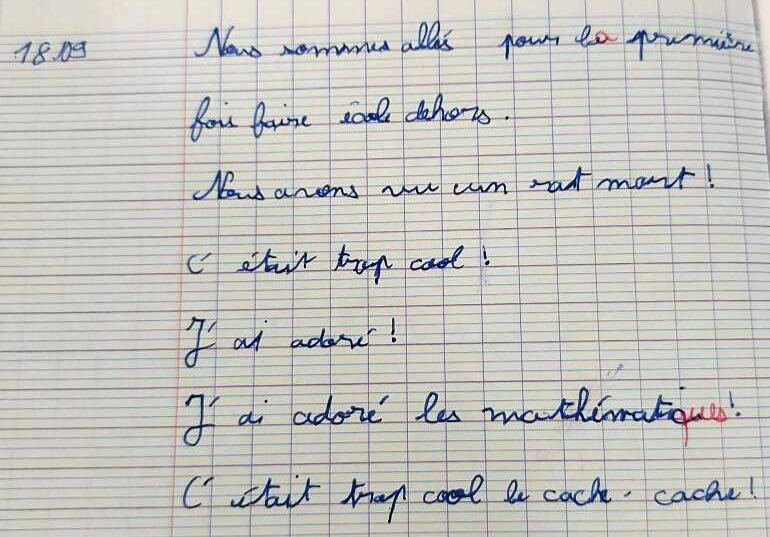 18.09 Nous sommes allés pour la première
fois faire école dehors.
Nous avons vu un rat mort !
C'était trop cool !
J'ai adoré !
J'ai adoré les mathématiques !
C'était trop cool le cache-cache !